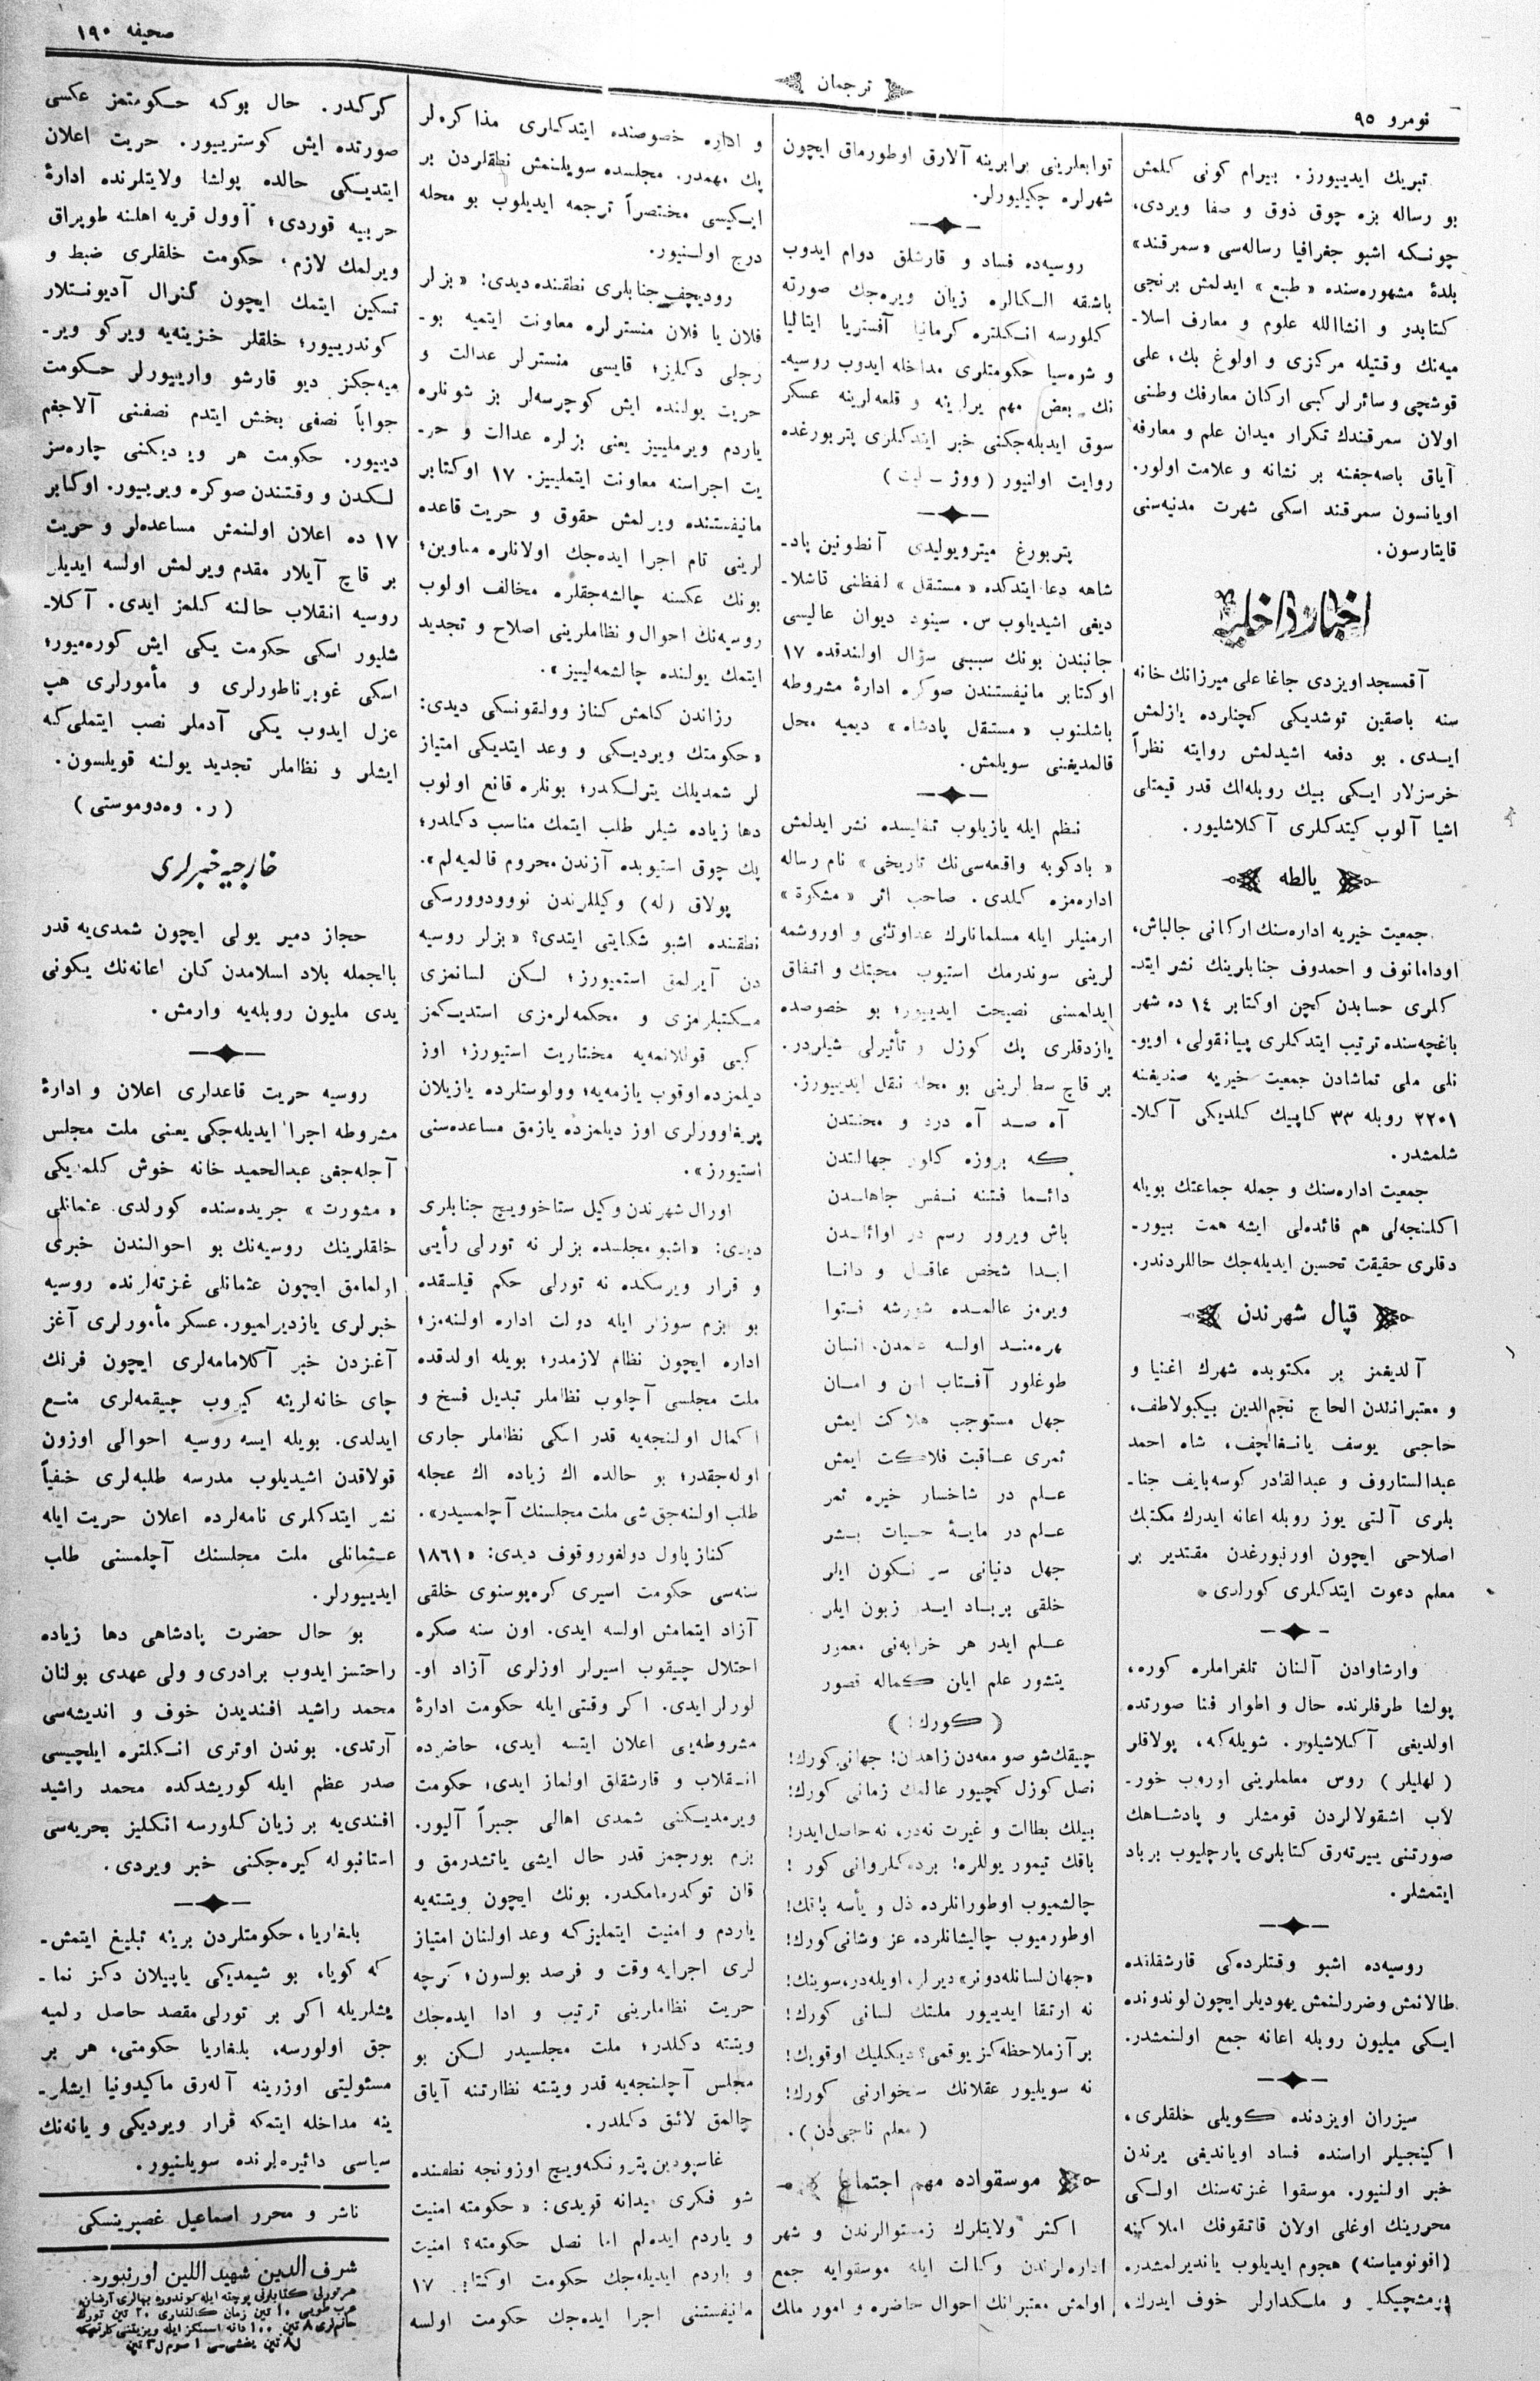 صحیفه ١٩٠
ترجمان
نومرو ٩٥
تبریك ایدییورز. بیرام كونی كلمش
بو رساله بزه چوق ذوق و صفا ویردی،
چونكه اشبو جغرافیا رساله‌سی «سمرقند»
بلدهٔ مشهوره‌سنده «طبع» ایدلمش برنجی
كتابدر و انشاالله علوم و معارف اسلا-
میه‌نك وقتیله مركزی و اولوغ بك، علی
قوشچی و سائرلر كبی اركان معارفك وطنی
اولان سمرقندك تكرار میدان علم و معارفه
آیاق باصه‌جغنه بر نشانه و علامت اولور.
اویانسون سمرقند اسكی شهرت مدنیه‌سنی
قایتارسون.
اخبار داخلیه
آقمسجد اویزدی جاغا علی میرزانك خانه
سنه باصقین توشدیكی كچنلرده یازلمش
ایدی. بو دفعه اشیدلمش روایته نظراً
خرسزلار ایكی بیك روبله‌لك قدر قیمتلی
اشیا آلوب كیتدكلری آكلاشلیور.
یالطه
جمعیت خیریه اداره‌سنك اركانی جالباش،
اودامانوف و احمدوف جنابلرینك نشر ایتد-
كلری حسابدن كچن اوكتابر ١٤ ده شهر
باغچه‌سنده ترتیب ایتدكلری پیانقولی، اویو-
نلی ملی تماشادن جمعیت خیریه صندیغنه
٢٢٠١ روبله ٣٣ كاپیك كلدیكی آكلا-
شلمشدر.
جمعیت اداره‌سنك و جمله جماعتك بویله
اكلنجه‌لی هم فائده‌لی ایشه همت بیور-
دقلری حقیقت تحسین ایدیله‌جك حاللردندر.
قپال شهرندن
آلدیغمز بر مكتوبده شهرك اغنیا و
و معتبراندن الحاج نجم‌الدین بیكبولاطف،
حاجی یوسف یانغالچف، شاه احمد
عبدالستاروف و عبدالقادر كوسه‌بایف جنا-
بلری آلتی یوز روبله اعانه ایدرك مكتبك
اصلاحی ایچون اورنبورغدن مقتدیر بر
معلم دعوت ایتدكلری كورلدی.
وارشاوادن آلنان تلغراملره كوره،
پولشا طرفلرنده حال و اطوار فنا صورتده
اولدیغی آكلاشیلور. شویله‌كه، پولاقلر
(لهلیلر) روس معلملرینی اوروب خور-
لاب اشقولالردن قومشلر و پادشاهك
صورتنی ییرته‌رق كتابلری پارچلیوب برباد
ایتمشلر.
روسیه‌ده اشبو وقتلرده‌كی قارشقلقده
طالانمش وضررلنمش یهودیلر ایچون لوندونده
ایكی میلیون روبله اعانه جمع اولنمشدر.
سیزران اویزدنده كویلی خلقلری،
اكینجیلر اراسنده فساد اویاندیغی یرندن
خبر اولنیور. موسقوا غزته‌سنك اولكی
محررینك اوغلی اولان قاتقوفك املاكینه
(افونومیاسنه) هجوم ایدیلوب یاندیرلمشدر.
پرمشچیكلر و ملكدارلر خوف ایدرك،
توابعلرینی برابرینه آلارق اوطورماق ایچون
شهرلره چكیلیورلر.
روسیه‌ده فساد و قارشلق دوام ایدوب
باشقه الكالره زیان ویره‌جك صورته
كلورسه انكلتره كرمانیا آفستریا ایتالیا
و شوه‌سیا حكومتلری مداخله ایدوب روسیه-
نك بعض مهم یرلرینه و قلعه‌لرینه عسكر
سوق ایدیله‌جكنی خبر ایتدكلری پتربورغده
روایت اولنیور
پتربورغ میترویولیدی آنطونین پاد-
شاهه دعا ایتدكده «مستقل» لفظنی تاشلا-
دیغی اشیدیلوب س. سینود دیوان عالیسی
جانبندن بونك سببی سؤال اولندقده ١٧
اوكتابر مانیفستندن صوكره ادارهٔ مشروطه
باشلنوب «مستقل پادشاه» دیمیه محل
قالمدیغنی سویلمش.
نظم ایله یازیلوب تفلیسده نشر ایدلمش
«بادكوبه واقعه‌سی‌نك تاریخی» نام رساله
اداره‌مزه كلدی. صاحب اثر «مشكوة»
ارمنیلر ایله مسلمانلرك عداوتنی و اوروشمه
لرینی سوندرمك استیوب محبتك و اتفاق
ایدلمسنی نصیحت ایدییور؛ بو خصوصده
یازدقلری پك كوزل و تأثیرلی شیلردر.
بر قاچ سطرلرینی بو محله نقل ایدییورز.
آه صد آه درد و محنتدن
كه بروزه كلور جهالتدن
دائما فتنه نفس جاهلدن
باش ویرور رسم در اوائلدن
ابدا شخص عاقل و دانا
ویرمز عالمده شورشه فتوا
بهره‌مند اولسه علمدن انسان
طوغلور آفتاب امن و امان
جهل مستوجب هلاكت ایمش
ثمری عاقبت فلاكت ایمش
علم در شاخسار خیره ثمر
علم در مایهٔ حیات بشر
جهل دنیانی سر نكون ایلر
خلقی برباد ایدر زبون ایلر
علم ایدر هر خرابه‌نی معمور
یتشور علم ایلن كماله قصور
(كورك!)
چیقك شو صومعه‌دن زاهدان! جهانی كورك!
نصل كوزل كچیور عالمك زمانی كورك!
بیلك بطالت و غیرت نه‌در، نه حاصل ایدر!
باقك تیمور یوللره! برده كاروانی كور!
چالشمیوب اوطورانلرده ذل و یأسه باقك!
اوطورمیوب چالیشانلرده عز وشانی كورك!
«جهان لسانله دونر» دیرلر، اویله‌در، سوینك!
نه ارتقا ایدییور ملتك لسانی كورك!
بر آز ملاحظه‌كز یوقمی؟ دیكلیك اوقویك!
نه سویلیور عقلانك سخنوارنی كورك!
(معلم ناجی‌دن).
موسقواده مهم اجتماع
اكثر ولایتلرك زمستوالرندن و شهر
اداره‌لرندن وكالت ایله موسقوایه جمع
اولمش معتبرانك احوال حاضره و امور ملك
و اداره خصوصنده ایتدكلری مذاكره‌لر
پك مهمدر. مجلسده سویلنمش نطقلردن بر
ایكیسی مختصراً ترجمه ایدیلوب بو محله
درج اولنیور.
رودیچف جنابلری نطقنده دیدی: «بزلر
فلان یا فلان منسترلره معاونت ایتمیه بو-
رجلی دكلیز؛ قایسی منسترلر عدالت و
حریت یولنده ایش كوچرسه‌لر بز شونلره
یاردم ویرملییز یعنی بزلره عدالت و حر-
یت اجراسنه معاونت ایتملییز. ١٧ اوكتابر
مانیفستنده ویرلمش حقوق و حریت قاعده
لرینی تام اجرا ایده‌جك اولانلره معاوین؛
بونك عكسنه چالشه‌جقلره مخالف اولوب
روسیه‌نك احوال و نظاملرینی اصلاح و تجدید
ایتمك یولنده چالشمه‌لییز».
رزاندن كلمش كناز وولقونسكی دیدی:
«حكومتك ویردیكی و وعد ایتدیكی امتیاز
لر شمدیلك یترلكدر؛ بونلره قانع اولوب
دها زیاده شیلر طلب ایتمك مناسب دكلدر؛
پك چوق استیوبده آزندن محروم قالمیه‌لم».
پولاق (له) وكیللرندن نوودوورسكی
نطقنده اشبو شكایتی ایتدی؟ «بزلر روسیه
دن آیرلمق استمیورز؛ لكن لسانمزی
مكتبلرمزی و محكمه‌لرمزی استدیكمز
كبی قوللانمه‌یه مختاریت استیورز؛ اوز
دیلمزده اوقوب یازمه‌یه؛ وولوستلرده یازیلان
پریغاوورلری اوز دیلمزده یازمق مساعده‌سنی
استیورز».
اورال شهرندن وكیل ستاخوویچ جنابلری
دیدی: «اشبو مجلسده بزلر نه تورلی رأیی
و قرار ویرسكده نه تورلی حكم قیلسقده
بو بزم سوزلر ایله دولت اداره اولنه‌مز؛
اداره ایچون نظام لازمدر؛ بویله اولدقده
ملت مجلسی آچلوب نظاملر تبدیل فسخ و
اكمال اولنجه‌یه قدر اسكی نظاملر جاری
اوله‌جقدر؛ بو حالده اك زیاده اك عجله
طلب اولنه‌جق شی ملت مجلسنك آچلمسیدر».
كناز پاول دولغوروقوف دیدی: «١٨٦١
سنه‌سی حكومت اسیری كره‌پوسنوی خلقی
آزاد ایتمامش اولسه ایدی. اون سنه صكره
احتلال چیقوب اسیرلر اوزلری آزاد او-
لورلر ایدی. اكر وقتی ایله حكومت ادارهٔ
مشروطه‌یی اعلان ایتسه ایدی، حاضرده
انقلاب و قارشقلق اولماز ایدی؛ حكومت
ویرمدیكنی شمدی اهالی جبراً آلیور.
بزم بورجمز قدر حال ایشی یاتشدرمق و
قان توكدرمامكدر. بونك ایچون ویتته‌یه
یاردم و امنیت ایتملیزكه وعد اولنان امتیاز
لری اجرایه وقت و فرصد بولسون؛ كرچه
حریت نظاملرینی ترتیب و ادا ایده‌جك
ویتته دكلدر؛ ملت مجلسیدر لكن بو
مجلس آچلنجه‌یه قدر ویتته نظارتنه آیاق
چالمق لائق دكلدر.
غاسپودین پترونكه‌ویچ اوزونجه نطقنده
شو فكری میدانه قویدی: «حكومته امنیت
و یاردم ایده‌لم اما نصل حكومته؟ امنیت
و یاردم ایدیله‌جك حكومت اوكتابر ١٧
مانیفستنی اجرا ایده‌جك حكومت اولسه
كركدر. حال بوكه حكومتمز عكسی
صورتده ایش كوستریییور. حریت اعلان
ایتدیكی حالده پولشا ولایتلرنده ادارهٔ
حربیه قوردی؛ آوول قریه اهلنه طوپراق
ویرلمك لازم، حكومت خلقلری ضبط و
تسكین ایتمك ایچون گنرال آدیوتتلار
كوندریییور؛ خلقلر خزینه‌یه ویركو ویر-
میه‌جكز دیو قارشو وارییورلر حكومت
جواباً نصفی بخش ایتدم نصفنی آلاجغم
دییور. حكومت هر ویردیكنی چاره‌سز
لكدن و وقتندن صوكره ویرییور. اوكتابر
١٧ ده اعلان اولنمش مساعده‌لر و حریت
بر قاچ آیلار مقدم ویرلمش اولسه ایدیلر
روسیه انقلاب حالنه كلمز ایدی. آكلا-
شلیور اسكی حكومت یكی ایش كوره‌میور؛
اسكی غوبرناطورلری و مأمورلری هپ
عزل ایدوب یكی آدملر نصب ایتملی‌كه
ایشلر و نظاملر تجدید یولنه قویلسون.
(ر. وه‌دوموستی)
خارجیه خبرلری
حجاز دمیر یولی ایچون شمدی‌یه قدر
بالجمله بلاد اسلامدن كلن اعانه‌نك یكونی
یدی ملیون روبله‌یه وارمش.
روسیه حریت قاعداری اعلان و ادارهٔ
مشروطه اجرا ایدیله‌جكی یعنی ملت مجلس
آچله‌جغی عبدالحمید خانه خوش كلمدیكی
«مشورت» جریده‌سنده كورلدی. عثمانلی
خلقلرینك روسیه‌نك بو احوالندن خبری
اولمامق ایچون عثمانلی غزته‌لرنده روسیه
خبرلری یازدیرلمیور. عسكر مأمورلری آغز
آغزدن خبر آكلامامه‌لری ایچون فرنك
چای خانه‌لرینه كیروب چیقمه‌لری منع
ایدلدی. بویله ایسه روسیه احوالی اوزون
قولاقدن اشیدیلوب مدرسه طلبه‌لری خفیاً
نشر ایتدكلری نامه‌لرده اعلان حریت ایله
عثمانلی ملت مجلسنك آچلمسنی طلب
ایدییورلر.
بو حال حضرت پادشاهی دها زیاده
راحتسز ایدوب برادری و ولی عهدی بولنان
محمد راشید افندیدن خوف و اندیشه‌سی
آرتدی. بوندن اوتری انكلتره ایلچیسی
صدر عظم ایله كوریشدكده محمد راشید
افندی‌یه بر زیان كلورسه انكلیز بحریه‌سی
استانبوله كیره‌جكنی خبر ویردی.
بلغاریا، حكومتلردن برینه تبلیغ ایتمش-
كه كویا، بو شیمدیكی یاپیلان دكز نما-
یشلریله اكر بر تورلی مقصد حاصل اولمیه
جق اولورسه، بلغاریا حكومتی، هر بر
مسئولیتی اوزرینه آله‌رق ماكیدونیا ایشلر-
ینه مداخله ایتمكه قرار ویردیكی ویانه‌نك
سیاسی دائیره‌لرنده سویلنیور.
ناشر و محرر اسماعیل غصپرینسكی
شرف الدین شهید اللین اورنبورده
هرتورلی كتابلرنی پوچته ایله كوندوره بهالری آرشان
عرب طوبی ١٠ تین زمان كالنداری ٢٠ تین تورك
خانملری ٨ تین ١٠٠ دانه اسمكز ایله ویزیتنی كارتچكه